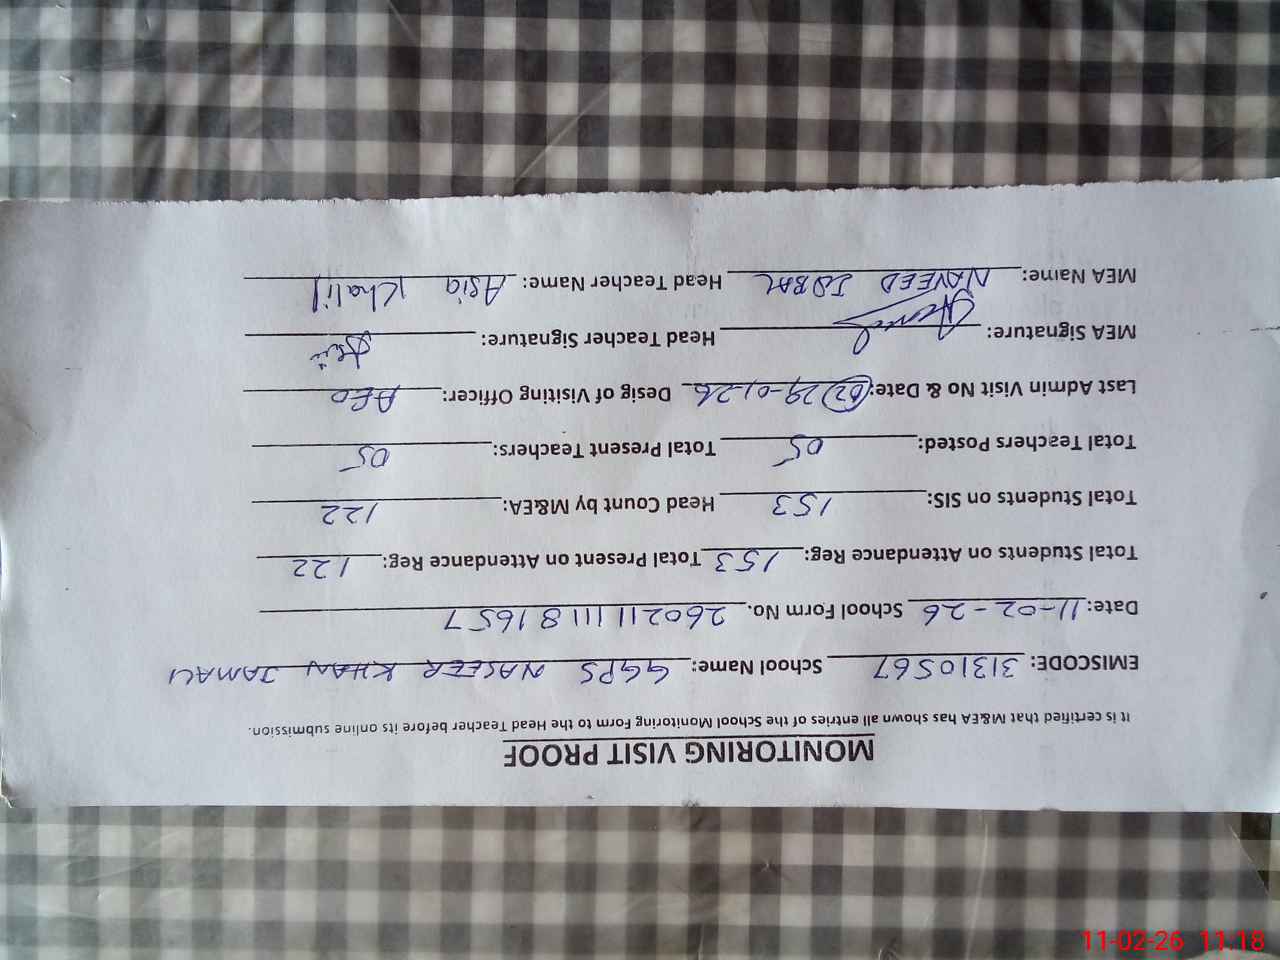 MONITORING VISIT PROOF
It is certified that M&EA has shown all entries of the School Monitoring Form to the Head Teacher before its online submission.
EMISCODE: 31310567 School Name: GGPS NASEER KHAN JAMALI
Date: 11-02-26 School Form No. 26021111181657
Total Students on Attendance Reg: 153 Total Present on Attendance Reg: 122
Total Students on SIS: 153 Head Count by M&EA: 122
Total Teachers Posted: 05 Total Present Teachers: 05
Last Admin Visit No & Date: (02) 29-01-26 Desig of Visiting Officer: AEO
MEA Signature: Head Teacher Signature:
MEA Name: NAVEED IQBAL Head Teacher Name: Asia Khalil
11-02-26 11:18